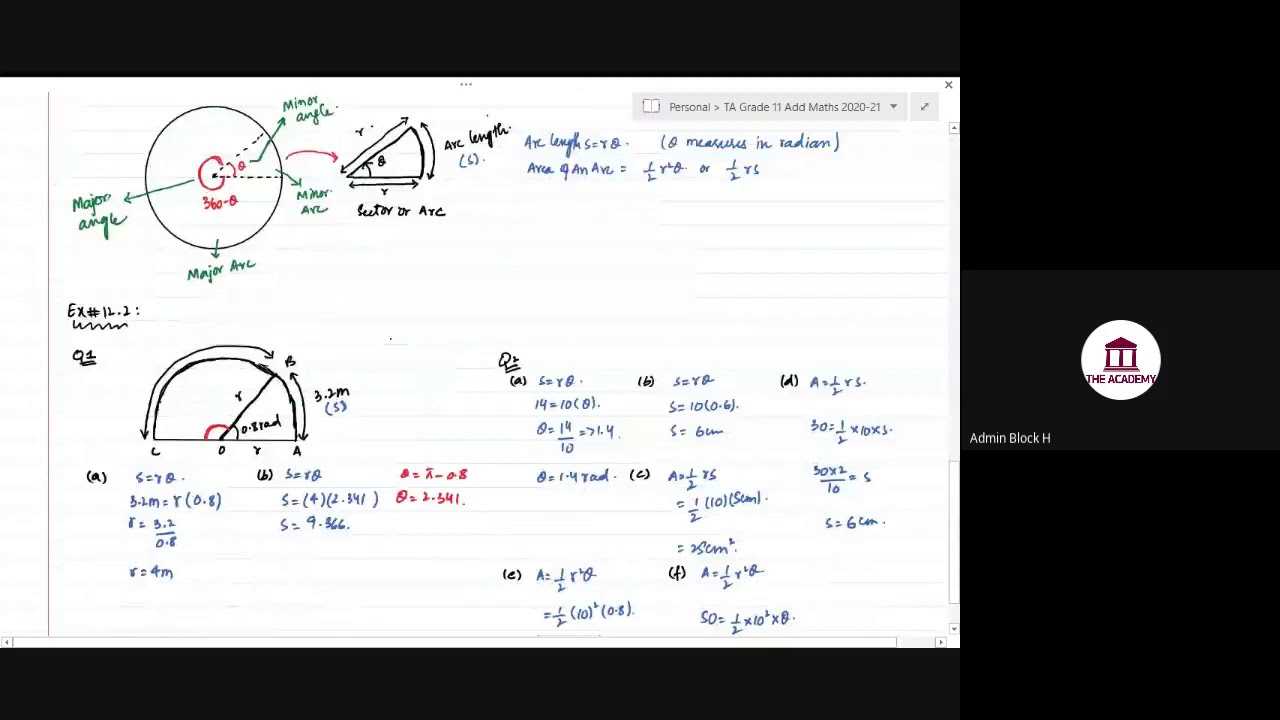 Personal > TA Grade 11 Add Maths 2020-21
Minor angle.
θ
360-θ
Major angle
Minor Arc
Major Arc
r.
θ
r
Arc length. (S).
Sector or Arc
Arc length S=rθ. (θ measures in radian)
Area of An Arc = 1/2 r²θ or 1/2 rs
Ex#12.2:
Q1
B
3.2m (S)
r
0.8rad
C O r A
(a) S=rθ.
3.2m=r(0.8)
r=3.2/0.8
r=4m
(b) S=rθ
S=(4)(2.341)
S=9.366.
θ=π-0.8
θ=2.341.
Q2
(a) S=rθ.
14=10(θ).
θ=14/10 =>1.4.
θ=1.4rad.
(b) S=rθ
S=10(0.6).
S=6cm
(c) A=1/2 rs
=1/2(10)(5cm).
=25cm².
(d) A=1/2 rs.
30=1/2×10×s.
30×2/10=s
S=6cm.
(e) A=1/2 r²θ
=1/2(10)²(0.8).
(f) A=1/2 r²θ
50=1/2×10²×θ.
THE ACADEMY
Admin Block H